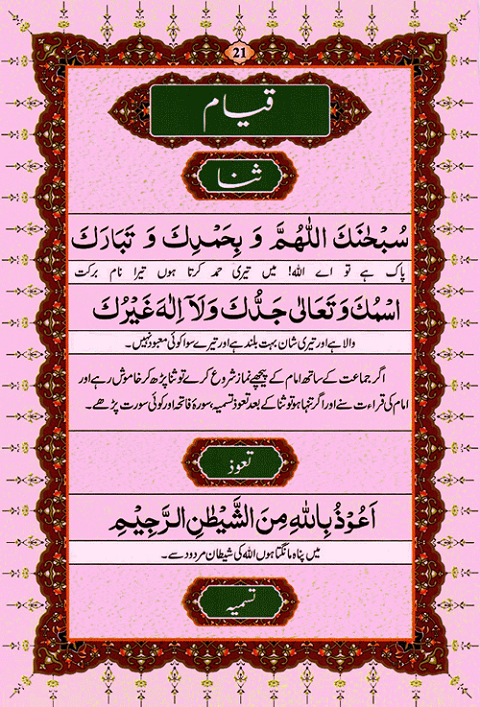 21
قیام
ثنا
سُبْحٰنَكَ اللّٰهُمَّ وَ بِحَمْدِكَ وَ تَبَارَكَ
پاک ہے تو اے اللہ! میں تیری حمد کرتا ہوں تیرا نام برکت
اسْمُكَ وَ تَعَالٰی جَدُّكَ وَلَآ اِلٰهَ غَیْرُكَ
والا ہے اور تیری شان بہت بلند ہے اور تیرے سوا کوئی معبود نہیں۔
اگر جماعت کے ساتھ امام کے پیچھے نماز شروع کرے تو ثنا پڑھ کر خاموش رہے اور
امام کی قراءت سنے اور اگر تنہا ہو تو ثنا کے بعد تعوذ تسمیہ سورۂ فاتحہ اور کوئی سورت پڑھے۔
تعوذ
اَعُوْذُ بِاللّٰهِ مِنَ الشَّیْطٰنِ الرَّجِیْمِ
میں پناہ مانگتا ہوں اللہ کی شیطان مردود سے۔
تسمیہ